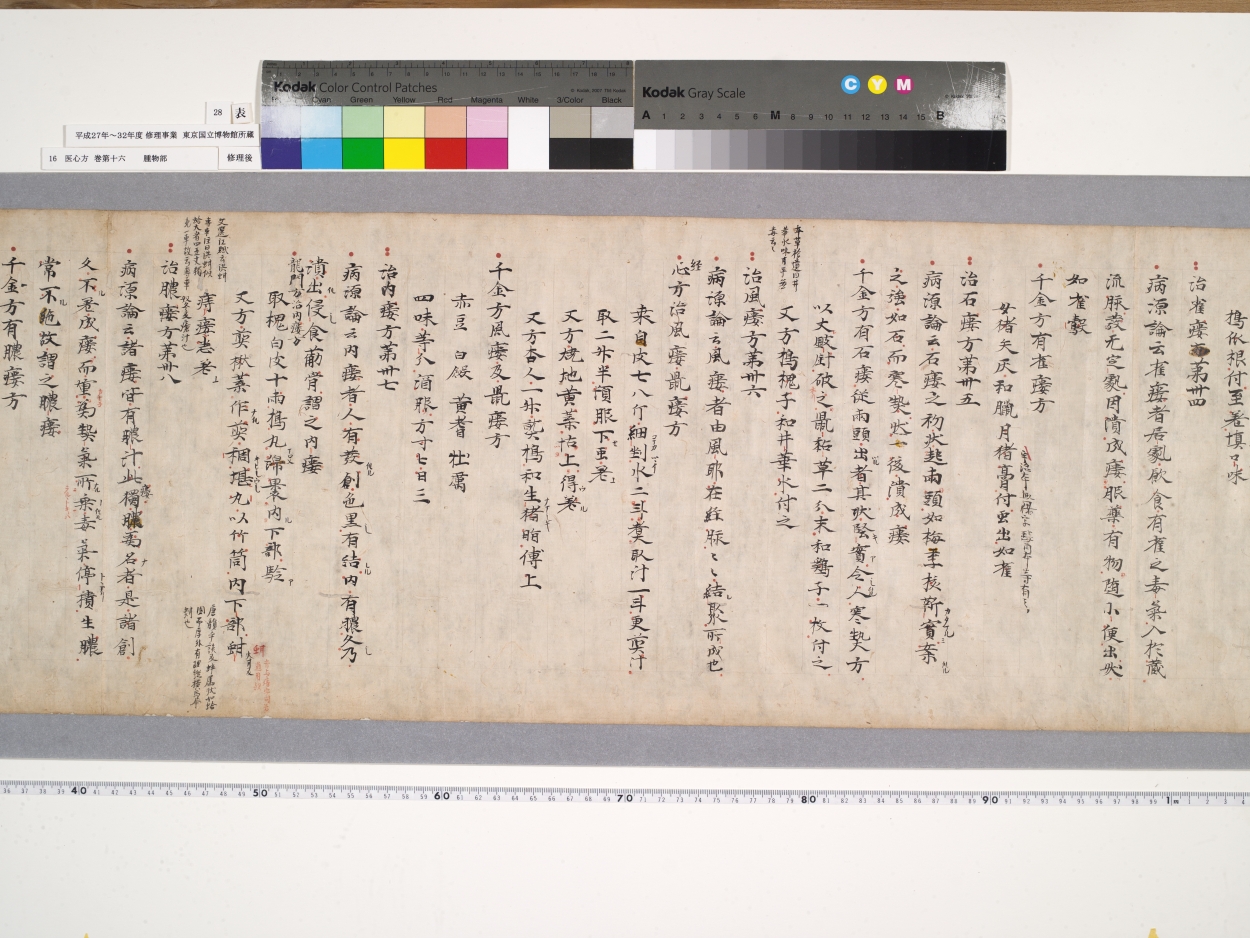 Kodak Color Control Patches
Cyan Green Yellow Red Magenta White 3/Color Black
Kodak Gray Scale
C Y M
A 1 2 3 4 5 6 M 8 9 10 11 12 13 14 15 B
28 表
平成27年～32年度 修理事業 東京国立博物館所蔵
16 医心方 巻第十六 腫物部 修理後
搗依根付至差慎口味
治雀瘻方第卅四
病源論云雀瘻者居氣飲食有雀之毒氣入於蔵
流脉發无定氣因潰成瘻服藥有物随小便出状
如雀鷇
千金方有雀瘻方
母猪矢灰和臘月猪膏付虫出如雀
治石瘻方第卅五
病源論云石瘻之初状起兩頭如梅李核所實案
之強如石而寒熱状後潰成瘻
千金方有石瘻從兩頭出者其状堅實令人寒熱方
以大鈹針破之鼠粘草二分末和鷄子一枚付之
又方搗槐子和井華水付之
治風瘻方第卅六
病源論云風瘻者由風邪在経脉々結聚所成也
経心方治風瘻鼠瘻方
桒白皮七八斤細剉水二斗煮取汁一斗更煎汁
取二升半頓服下虫老
又方焼地黄葉怗上得老
又方杏人一升熬搗和生猪脂傅上
千金方風瘻及鼠瘻方
赤豆 白蘞 黄耆 牡厲
四味等分酒服方寸匕日三
治内瘻方第卅七
病源論云内瘻者人有發創色黒有結内有膿久乃
潰出侵食筋骨謂之内瘻
龍門方治内瘻方
取槐白皮十兩搗丸綿裹内下部験
又方煎楸葉作煎稠堪丸以竹筒内下部
痔瘻老老
治膿瘻方第卅八
病源論云諸瘻皆有膿汁此瘻獨膿為名者是諸創
久不差成瘻而重為熱氣所乗毒氣停積生膿
常不絶故謂之膿瘻
千金方有膿瘻方
40 50 60 70 80 90 1m